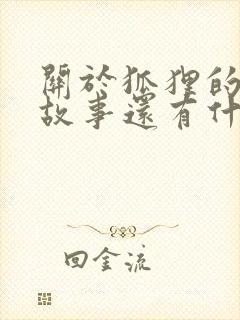 關於狐狸的
故事還有什
回金流